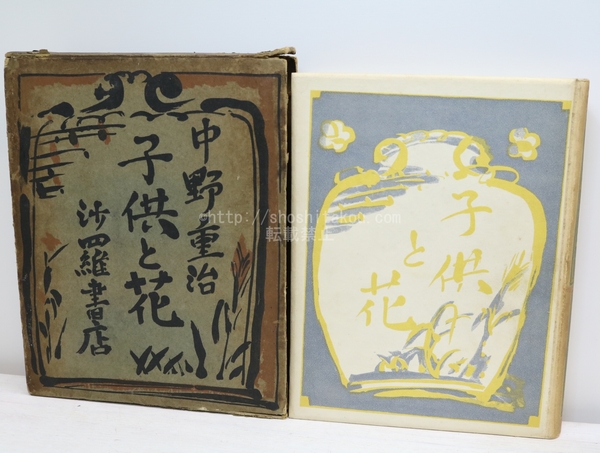 中野重治
子供と花
沙羅書店
子供
と
花
http://shoshitekou.com
転載禁止